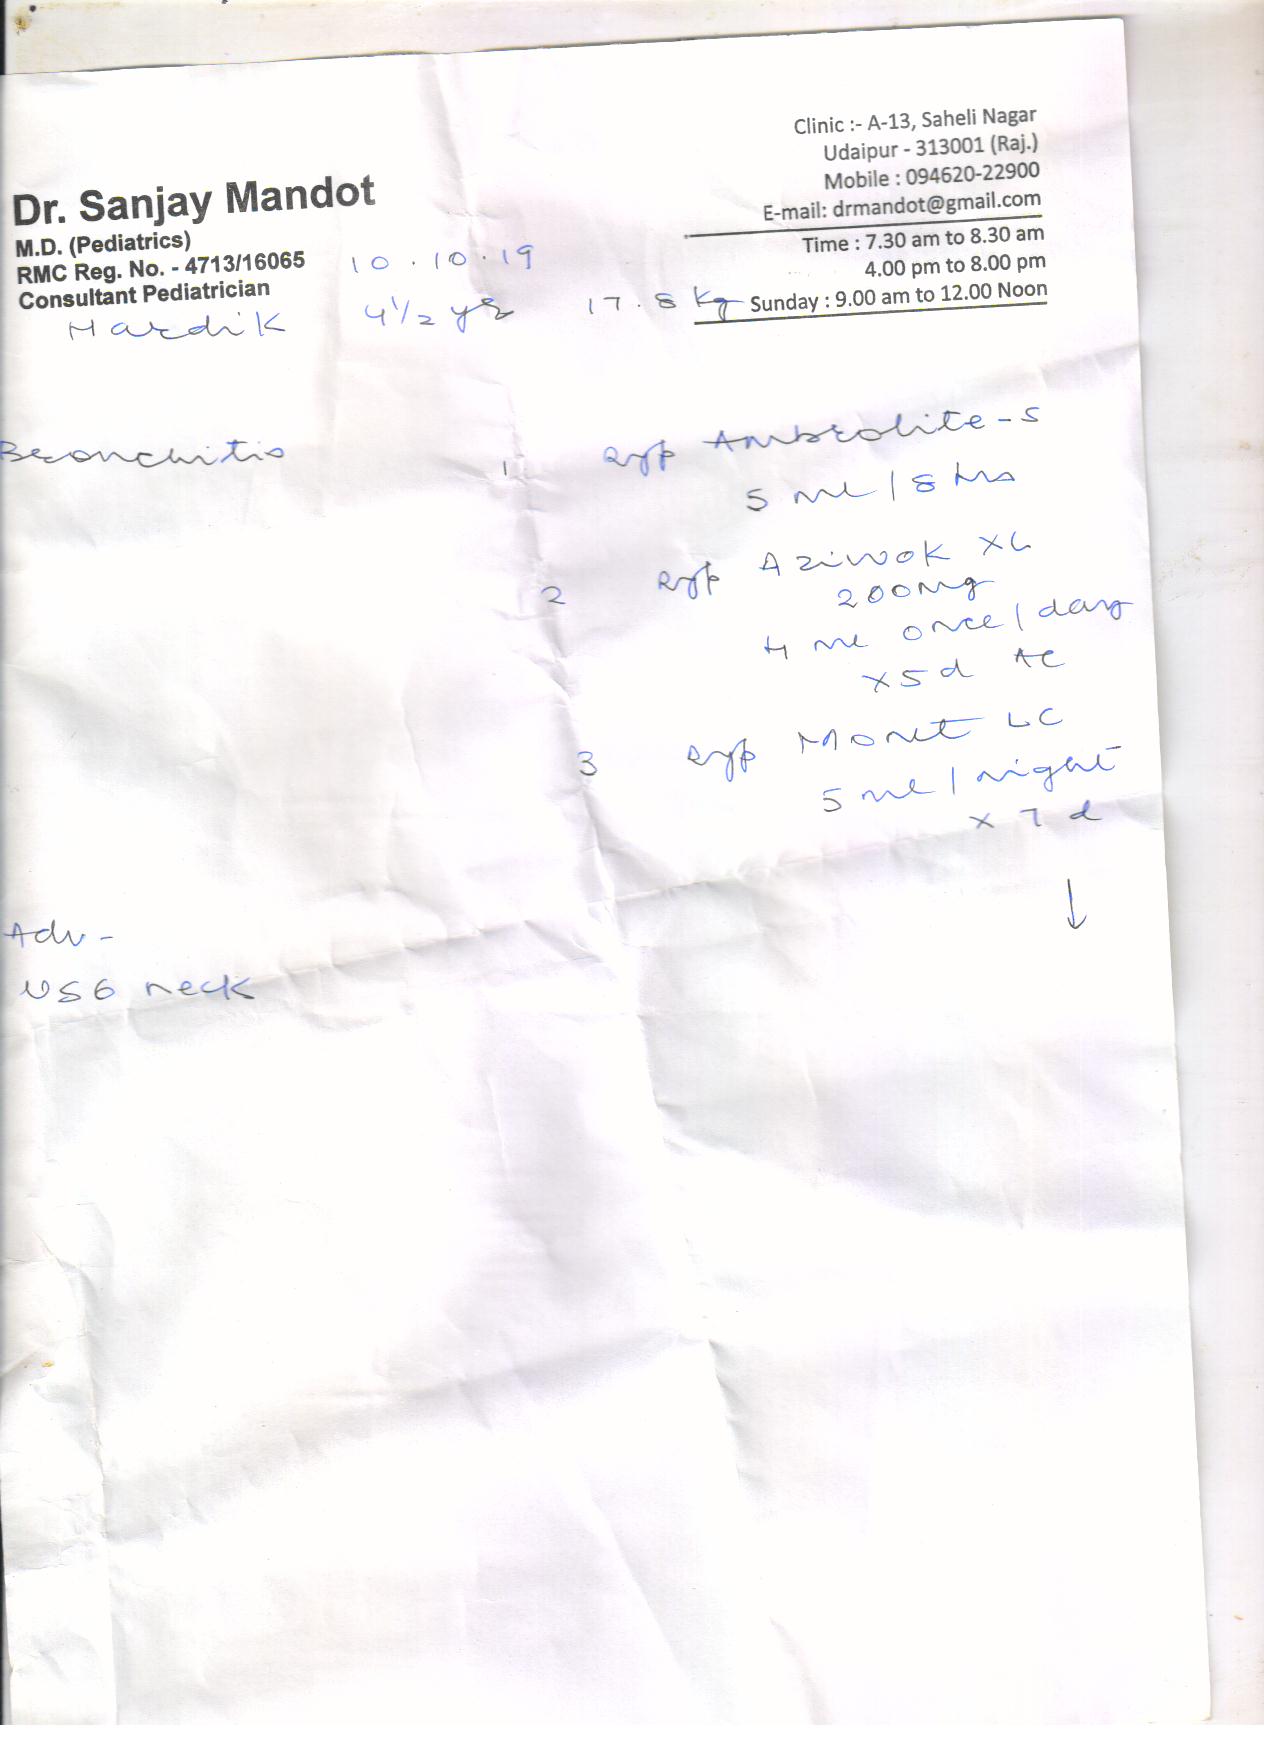 Clinic :- A-13, Saheli Nagar
Udaipur - 313001 (Raj.)
Mobile : 094620-22900
E-mail: drmandot@gmail.com
Time : 7.30 am to 8.30 am
4.00 pm to 8.00 pm
Sunday : 9.00 am to 12.00 Noon
Dr. Sanjay Mandot
M.D. (Pediatrics)
RMC Reg. No. - 4713/16065
Consultant Pediatrician
10.10.19
Hardik 4½ yr 17.8 kg
Bronchitis
1 Syp Ambrolite-S
5 ml / 8 hrs
2 Syp Aziwok XL
200mg
4 ml once / day
x 5 d AC
3 Syp Monet LC
5 ml / night
x 7 d
↓
Adv -
USG neck